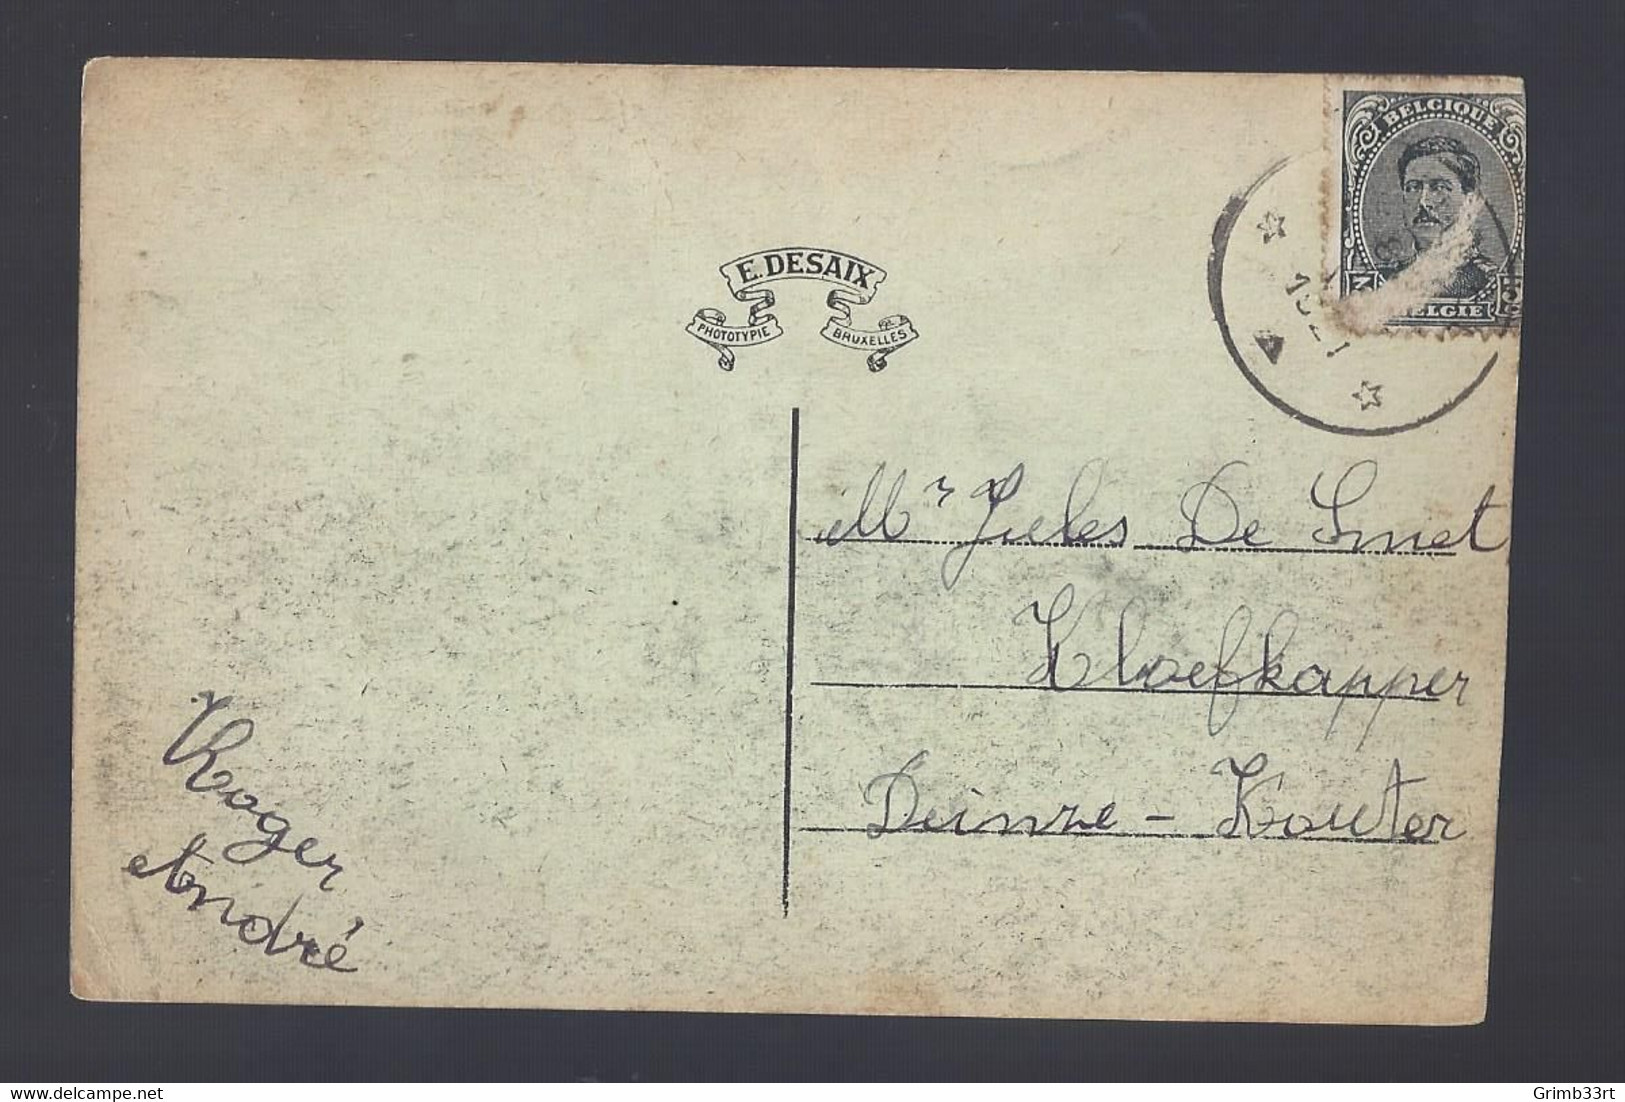 BELGIQUE
E. DESAIX
PHOTOTYPIE
BRUXELLES
BELGIE
Mr Jules De Smet
Kloefkapper
Deinze - Kouter
Roger
André
delcampe.net
Grimb33rt